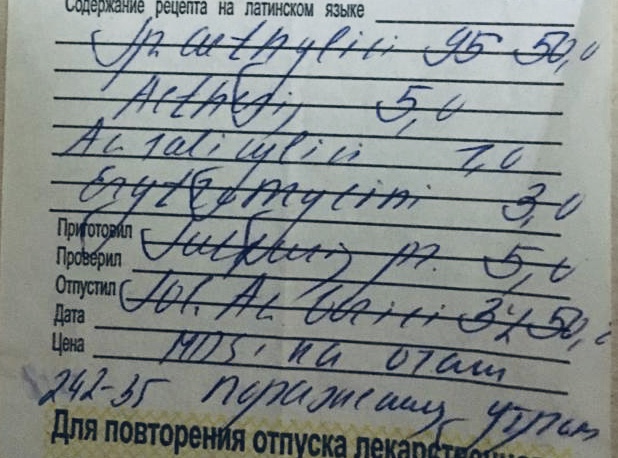 Содержание рецепта на латинском языке
Sp. aethylici 95 50,0
Aetheri, 5,0
Ac salicylici 1,0
Erythromycini 3,0
Приготовил Sulfuri, pr. 5,0
Проверил
Отпустил Sol. Ac borici 3% 50,0
Дата
Цена MDS. на очаги
242-35 поражения, утром
Для повторения отпуска